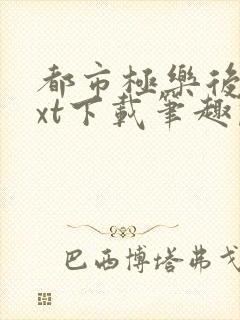 都市極樂後
xt下載筆趣
巴西博塔弗戈